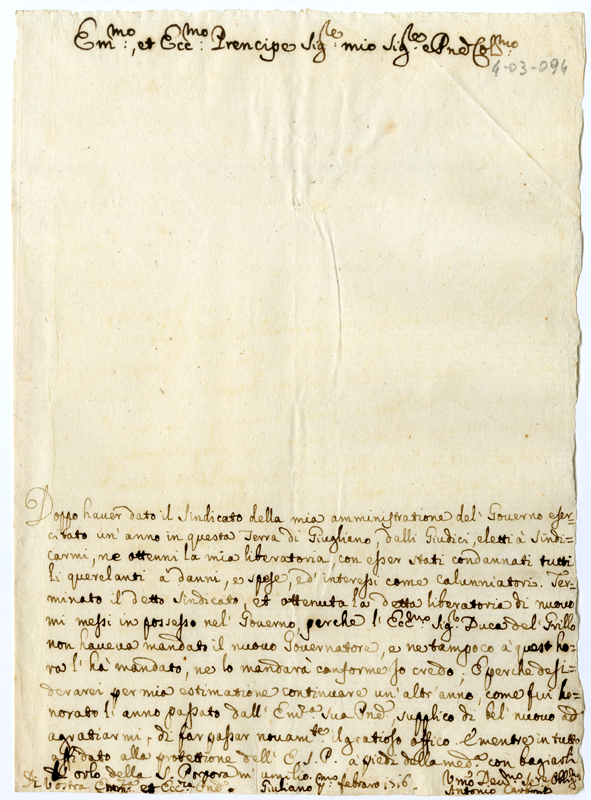 Em.mo, et Ecc.mo Prencipe Sig.re mio Sig.re e Pne Col.mo
4-03-094
Doppo haver dato il Sindicato della mia amministratione del' Governo eser-
citato un' anno in questa Terra di Giugliano, dalli Giudici, eletti à Sindi-
carmi, ne ottenni la mia liberatoria, con esser stati condannati tutti
li querelanti a danni, e, spese, ed' interessi come calunniatori. Ter-
minato il detto Sindicato, et ottenuta la detta liberatoria di nuovo
mi messi in possesso nel' Governo, perche l' Ecc.mo Sig.r Duca del' Grillo
non haveva mandato il nuovo Governatore, a ne tampoco à quest' ho-
ra l' hà mandato, ne lo mandarà conforme Io credo. E perche desi-
derarei per mia estimatione continuare un' altr' anno, come fui ho-
norato l' anno passato dall' Em.za Sua Pne, supplico di bel' nuovo ad
agratiarmi, di far passar novam.te il gratioso officio. E mentre in tutto
affidato alla protettione dell' E. S. P. a' piedi della med.a con bagiarli
l' orlo della S. Porpora m' umilio.
Di Vostra Em.za et Ecc.za Pne.
Giuliano febraro
V.mo Dev.mo se.re Obblig.mo
Antonio